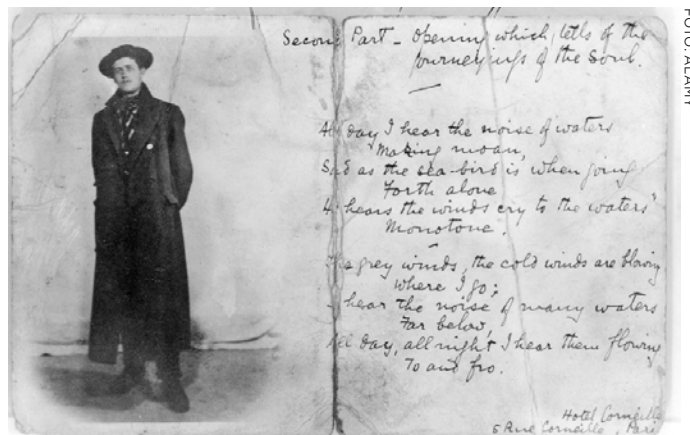 Second Part – Opening which tells of the
journeyings of the Soul.
All day I hear the noise of waters
Making moan,
Sad as the sea-bird is when going
Forth alone
He hears the winds cry to the waters'
Monotone.
The grey winds, the cold winds are blowing
where I go;
I hear the noise of many waters
Far below,
All day, all night I hear them flowing
To and fro.
Hotel Corneille
5 Rue Corneille, Paris
PHOTO: ALAMY